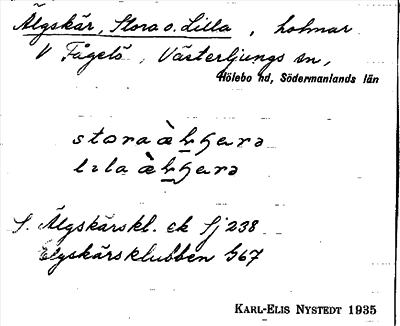 Älgskär, Stora o. Lilla, holmar
V Fågelö, Västerljungs sn,
Hölebo hd, Södermanlands län
stora
lila
S. Älgskärskl. ek Sj 238
Elgskärsklubben G67
KARL-ELIS NYSTEDT 1935